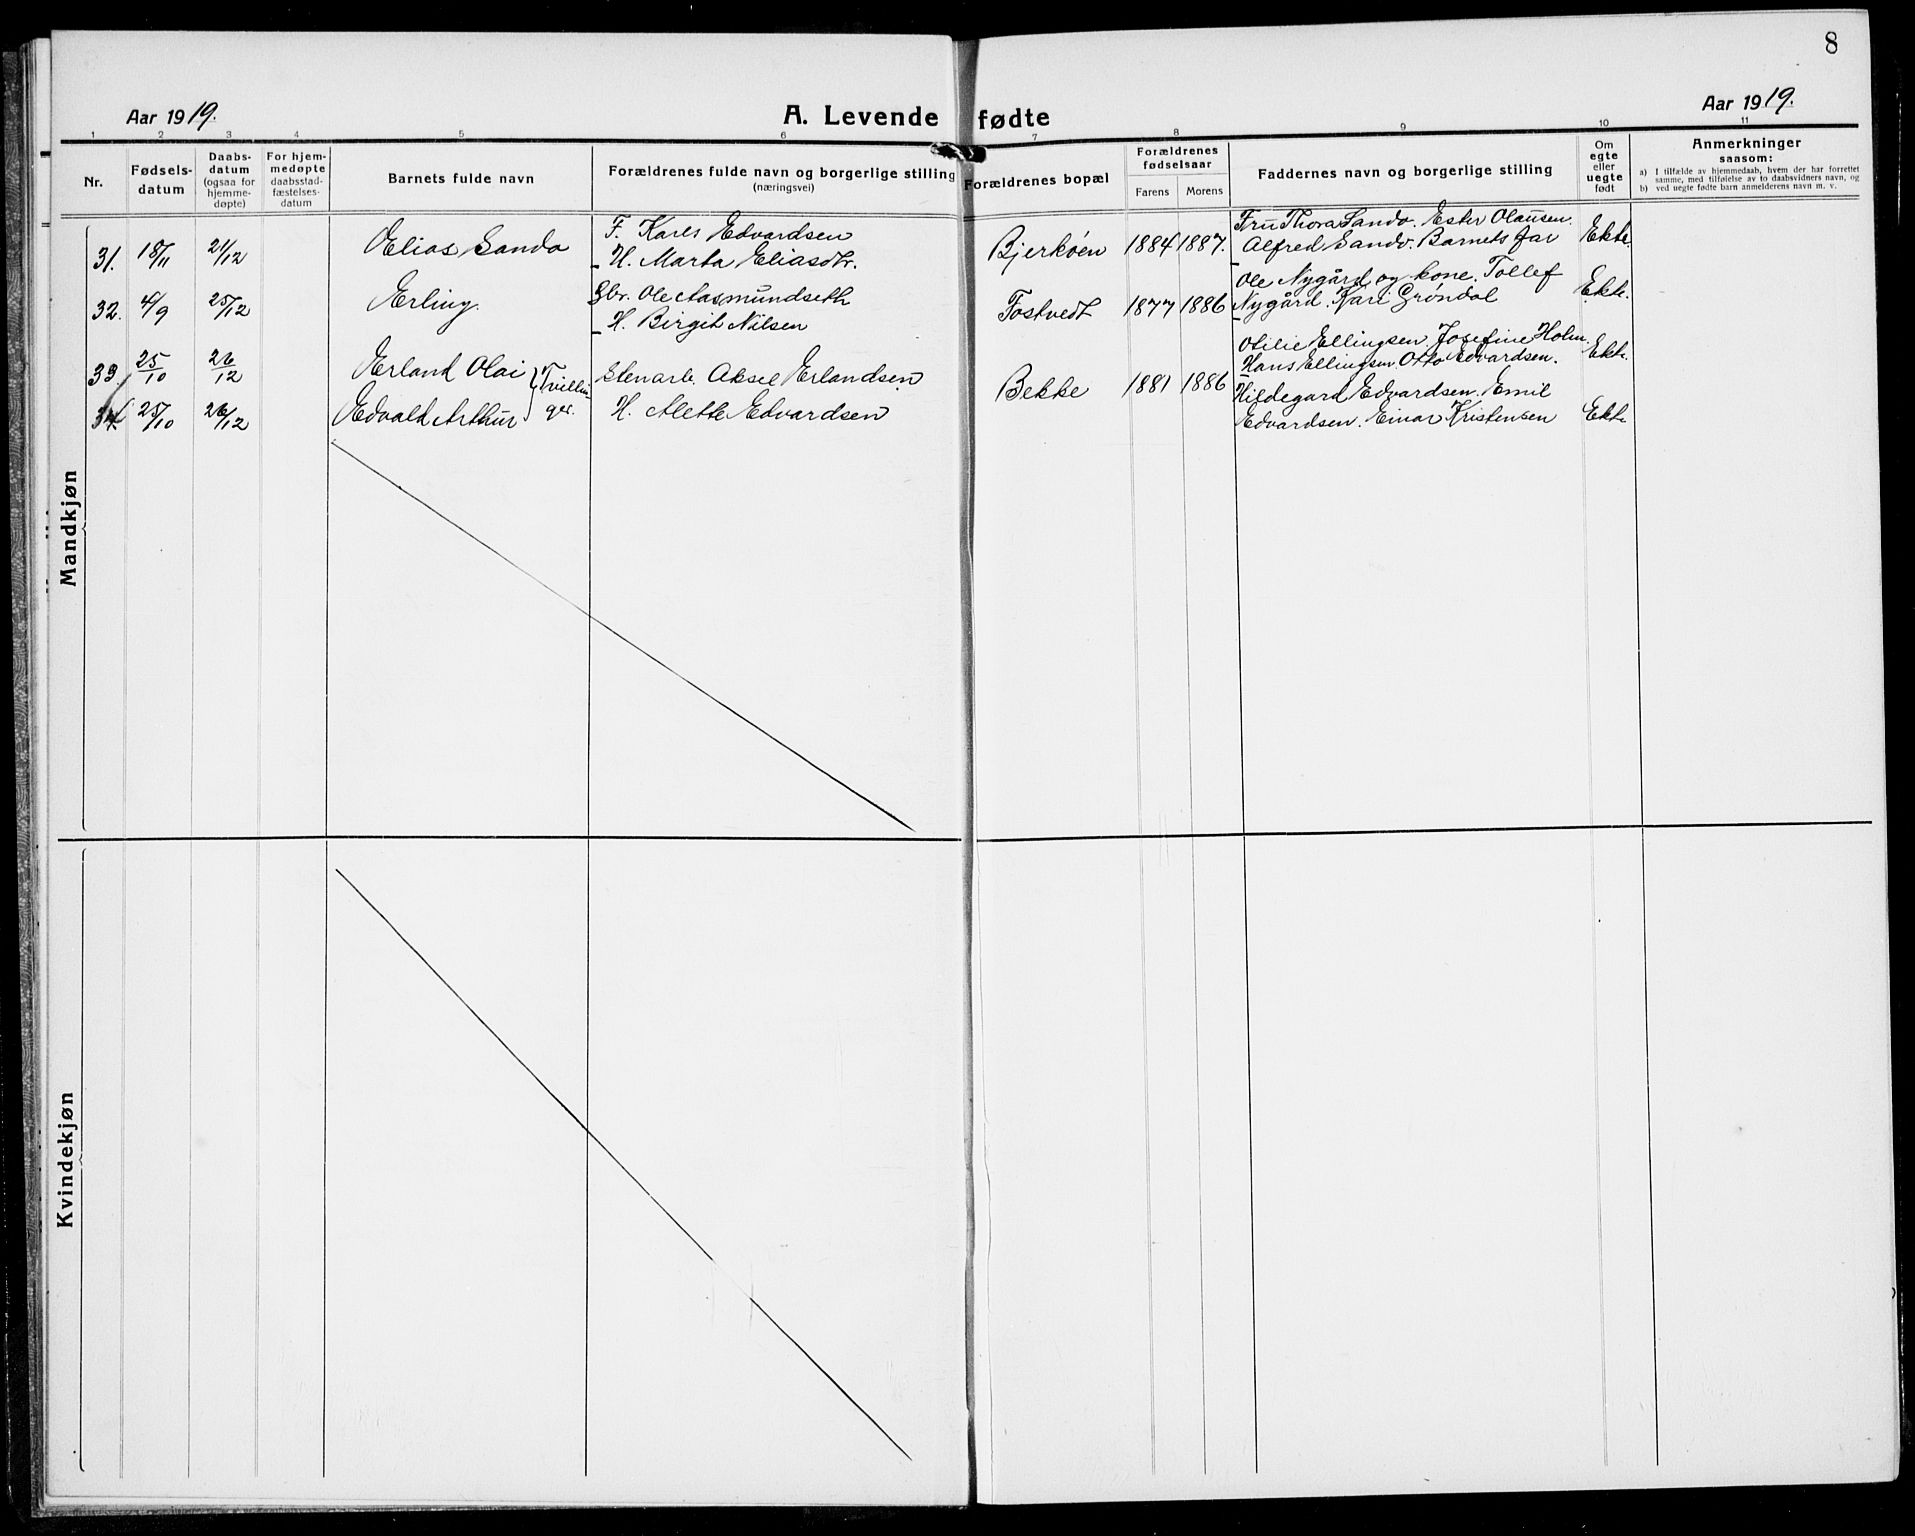 8
Aar 1919.
A. Levende fødte
Aar 1919.
1 2 3 4 5 6 7 8 9 10 11
Nr.
Fødsels-
datum
Daabs-
datum
(ogsaa for
hjemme-
døpte)
For hjem-
medøpte
daabsstad-
fæstelses-
datum
Barnets fulde navn
Forældrenes fulde navn og borgerlige stilling
(næringsvei)
Forældrenes bopæl
Forældrenes
fødselsaar
Farens Morens
Faddernes navn og borgerlige stilling
Om
egte
eller
uegte
født
Anmerkninger
saasom:
a) I tilfælde av hjemmedaab, hvem der har forrettet
samme, med tilføielse av to daabsvidners navn, og
b) ved uegte fødte barn anmelderens navn m. v.
Mandkjøn
31. 18/11 21/12 Elias Sando
F. Kares Edvardsen
H. Marta Eliasdtr.
Bjerkøen 1884 1887.
Fru Thora Sando. Ester Olausen.
Alfred Sando. Barnets far
Ekte.
32. 4/9 25/12 Erling.
Gbr. Ole Aasmundseth
H. Birgit Nilsen
Tostvedt 1877 1886
Ole Nygård og kone. Tollef
Nygård. Kari Grøndal
Ekte.
33 25/10 26/12 Erland Olai
34. 25/10 26/12 Edvald Arthur
Tvillin
ger.
Stenarb. Aksel Erlandsen
H. Alette Edvardsen
Bekke 1881 1886
Otilie Ellingsen. Josefine Holm.
Hans Ellingsen. Otto Edvardsen.
Ekte.
Hildegard Edvardsen. Emil
Edvardsen. Einar Kristensen
Ekte
Kvindekjøn